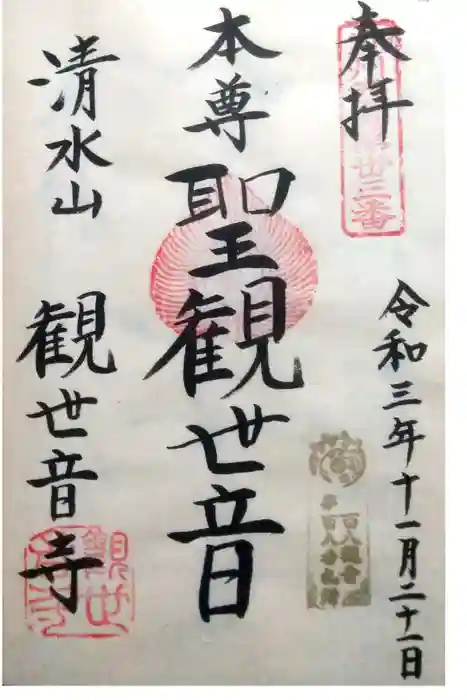 奉拝
廿三番
令和三年十一月二十一日
本尊
聖観世音
清水山
観世音寺
観世